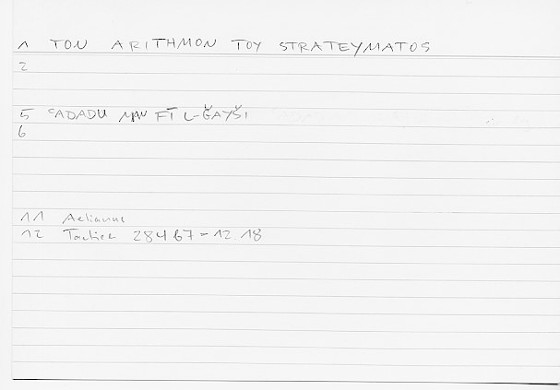 1 TON ARITHMON TOY STRATEYMATOS
2
5 ʿADADU MAN FĪ L-ǦAYŠI
6
11 Aelianus
12 Tactica 284 67-12.18